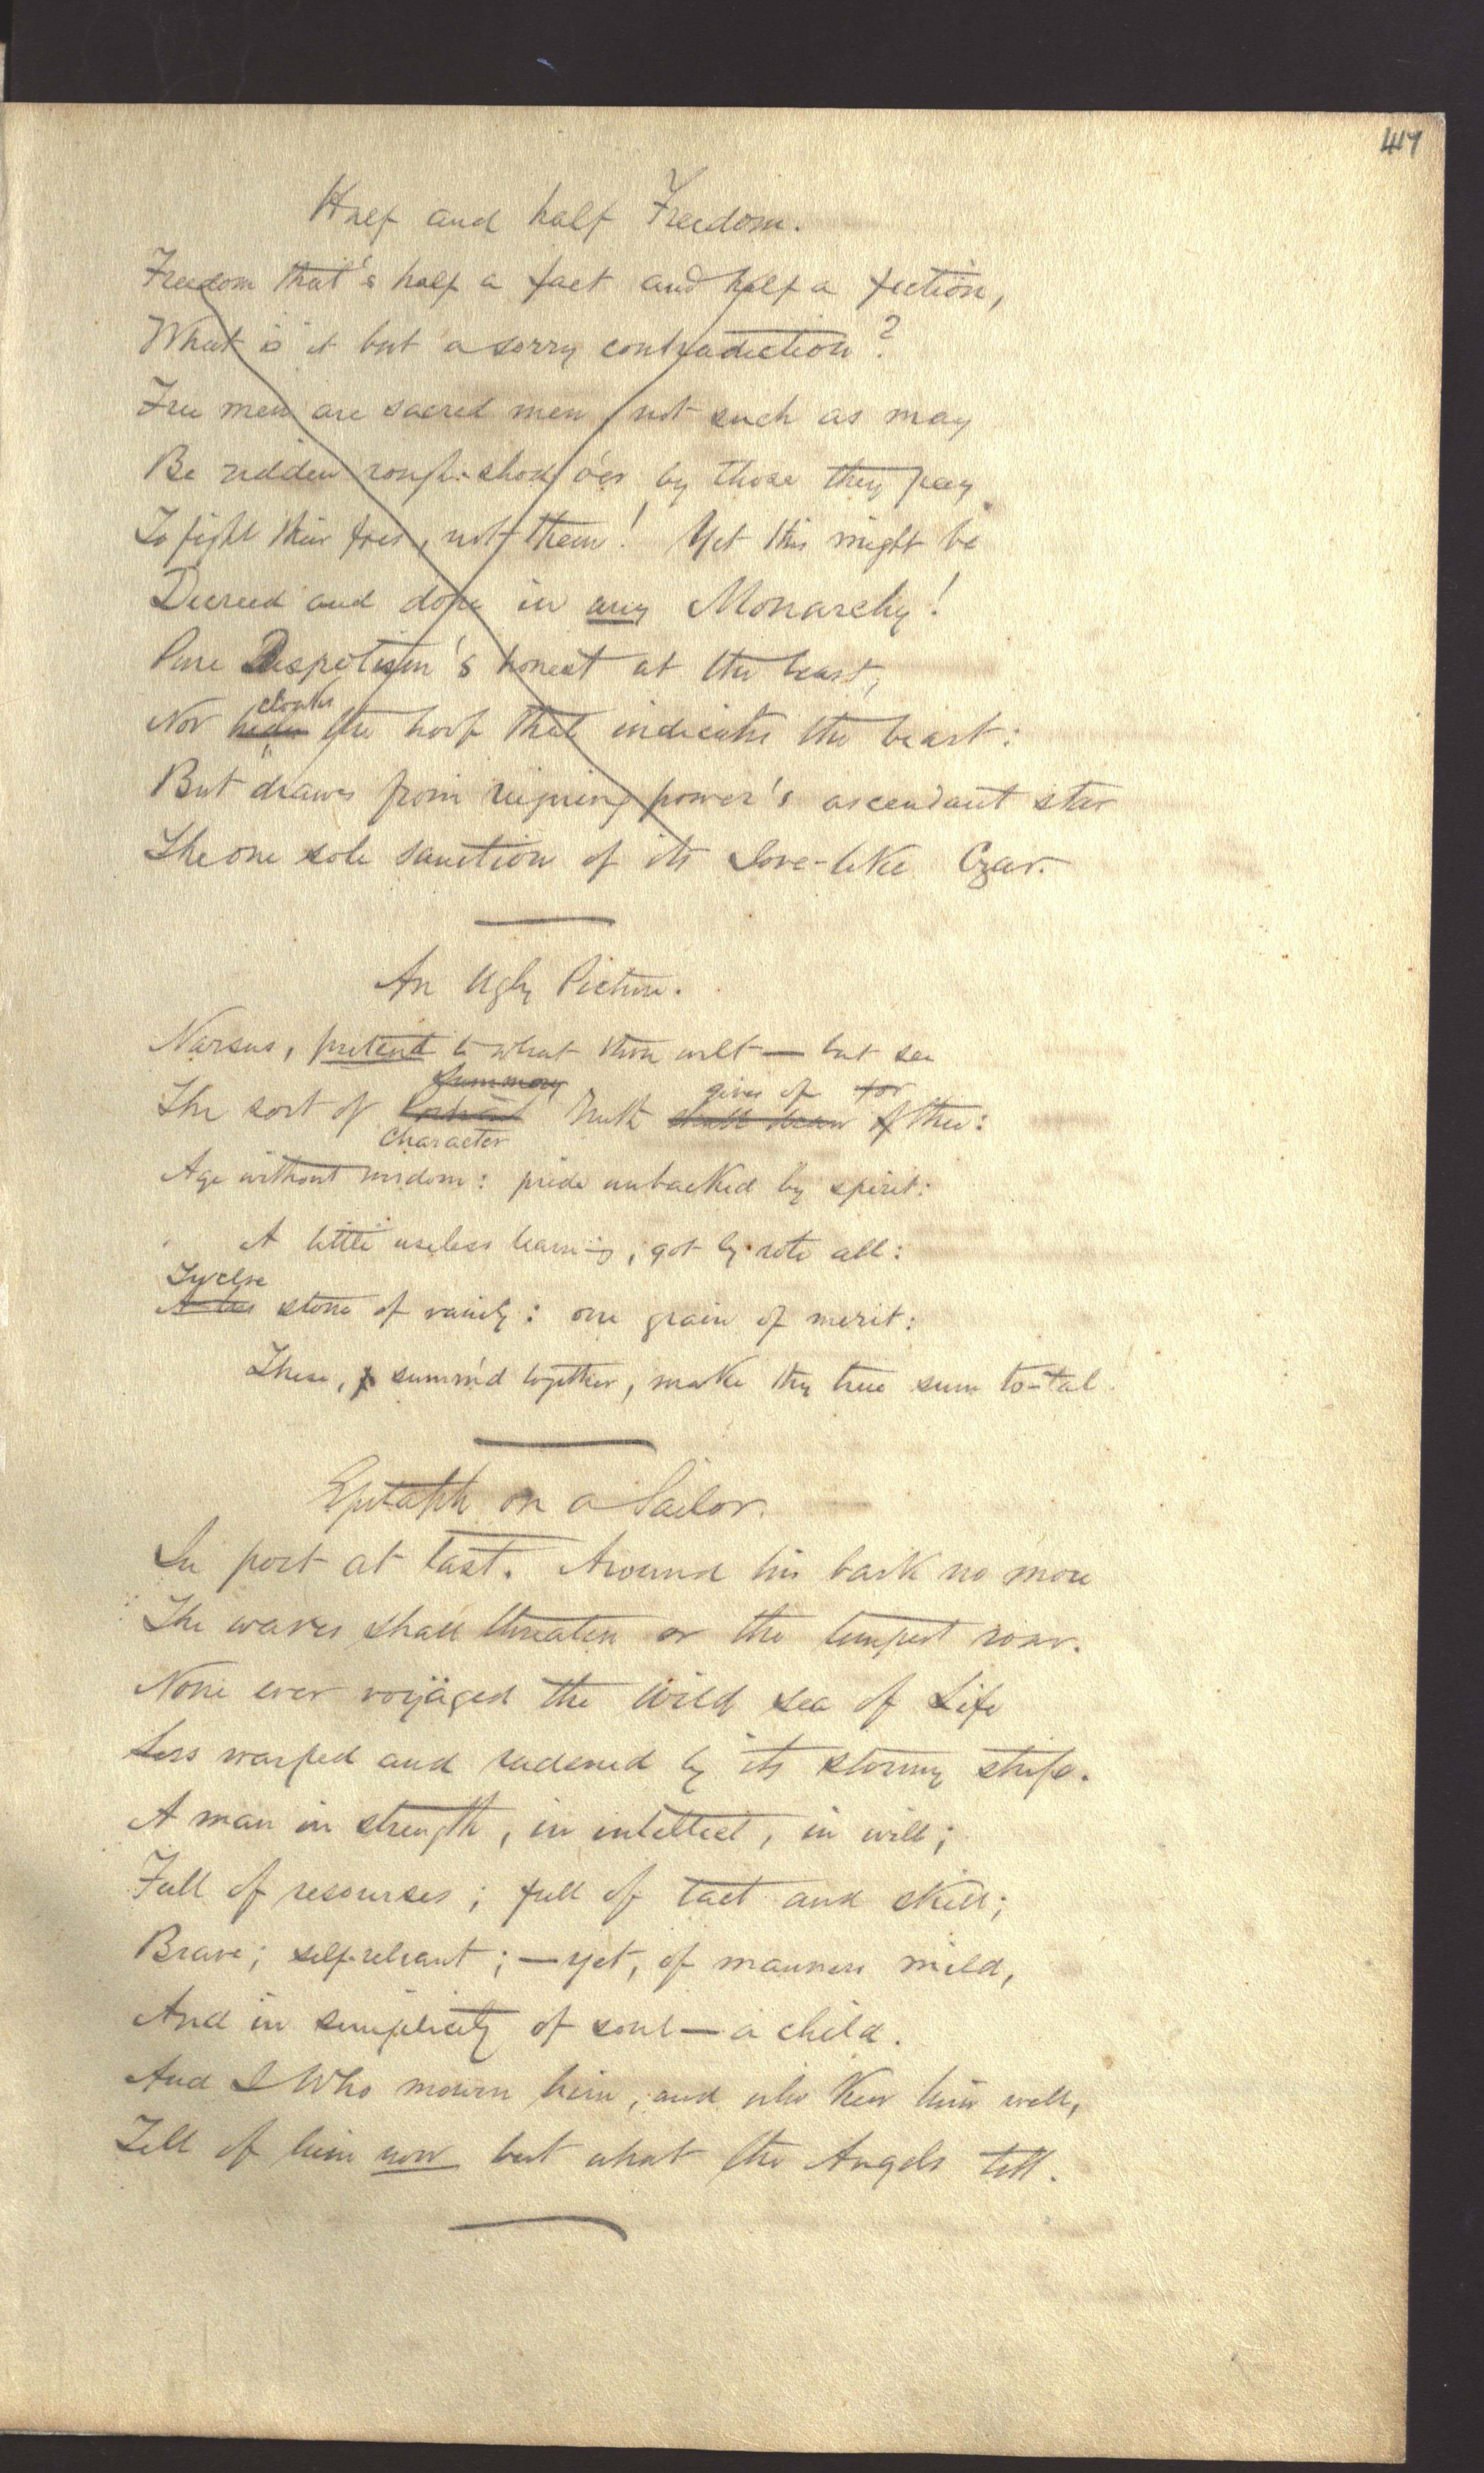 417
Half and half Freedom.
Freedom that's half a fact and half a fiction,
What is it but a sorry contradiction?
Free men are sacred men, not such as may
Be ridden rough-shod o'er by those they pay
To fight their foes, not them! Yet this might be
Decreed and done in any Monarchy!
Pure Despotism's honest at the least,
cloaks
Nor hides the hoof that indicates the beast:
But draws from reigning power's ascendant star
The one sole sanction of its Jove-like Czar.
An Ugly Picture.
Narsus, pretend to what thou wilt — but see
Summary gives of for
The sort of Portrait Truth shall draw of thee:
character
Age without wisdom: pride unbacked by spirit:
A little useless learning, got by rote all:
Twelve
A ten stone of vanity: one grain of merit:
These, summ'd together, make thy true sum to-tal.
Epitaph on a Sailor.
In port at last. Around his bark no more
The waves shall threaten or the tempest roar.
None ever voyäged the wild sea of Life
Less warped and by its stormy strife.
A man in strength, in intellect, in will;
Full of resourses; full of tact and skill;
Brave; self-reliant; — yet, of manners mild,
And in simplicity of soul — a child.
And I who mourn him, and who knew him well,
Tell of him now but what the Angels tell.